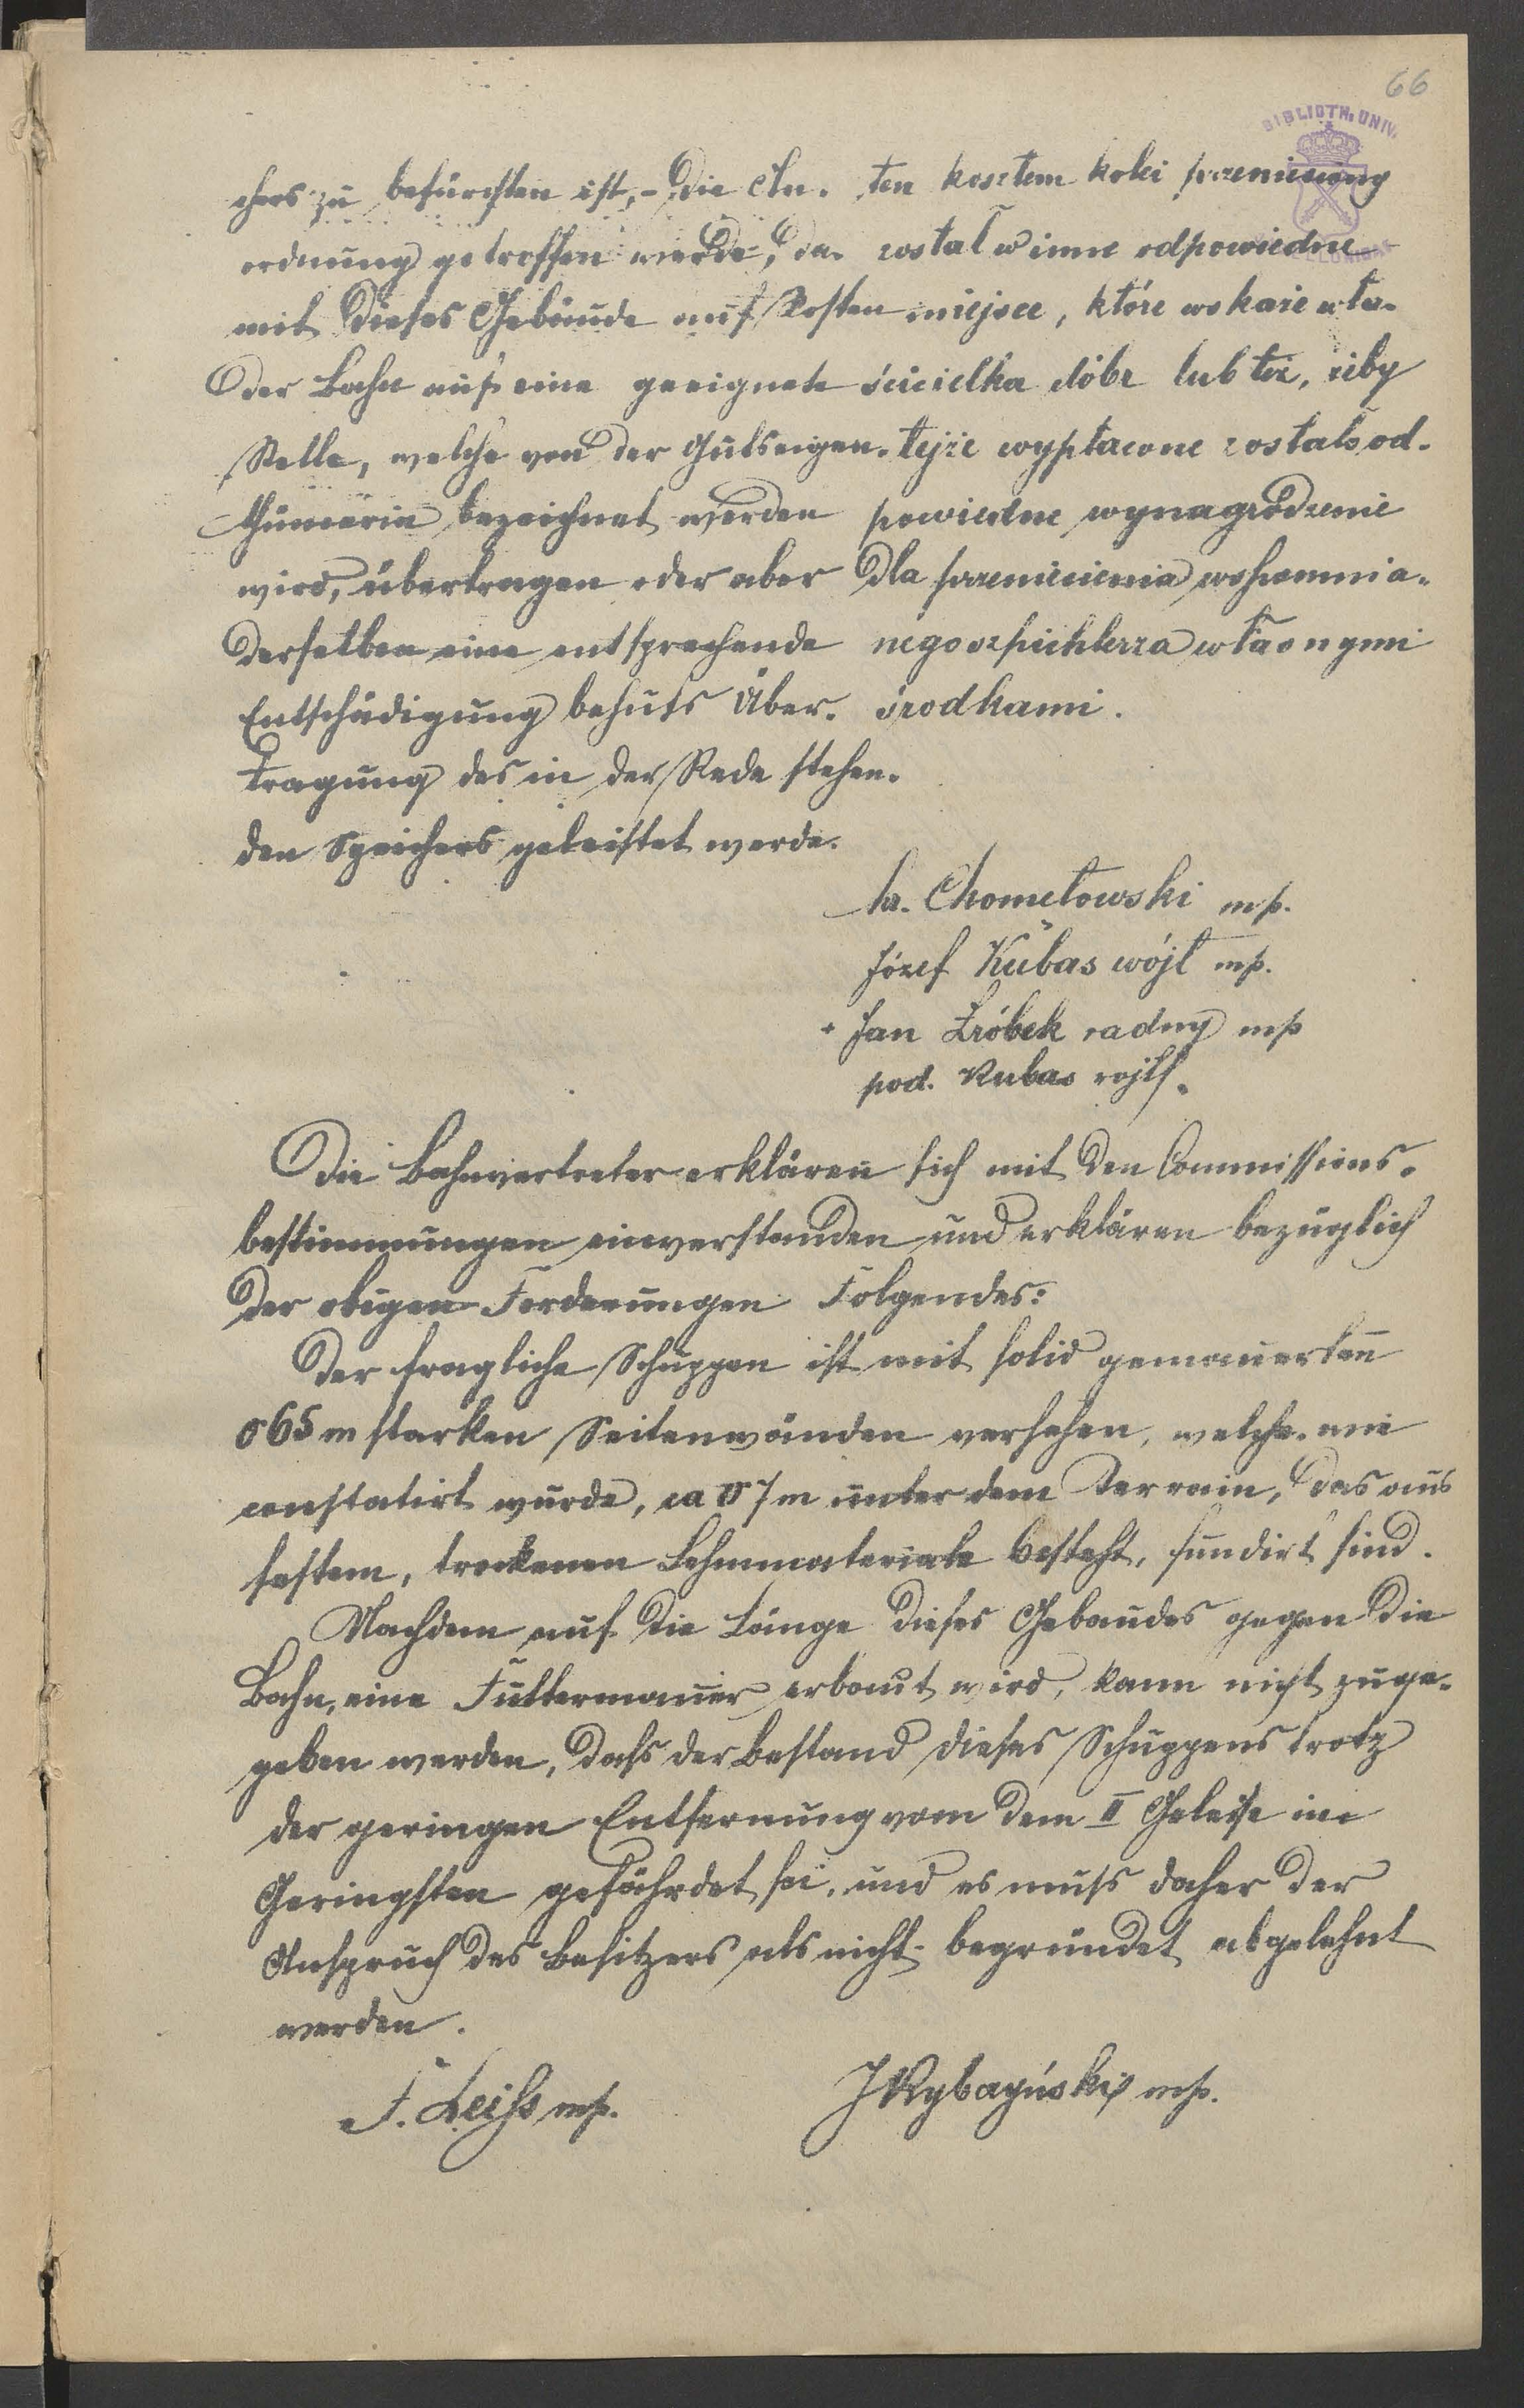 66
BIBLIOTH. UNIV.
chers zu befürchten ist, - die An-
ordnung getroffen werde, da-
mit dieses Gebäude auf Kosten
der Bahn auf eine geeignete
Stelle, welche von der Gutseigen-
thümerin bezeichnet werden
wird, übertragen oder aber
derselben eine entsprechende
Entschädigung behufs Über-
tragung des in der Rede stehen-
den Speichers geleistet werde.
ten kosztem kolei przeniesiony
został w inne odpowiedne
miejsce, które wskaże wła-
ścicielka dóbr lub też, żeby
tejże wypłacone zostało od-
powiedne wynagrodzenie
dla przeniesienia wspomnia-
nego szpichlerza własnymi
środkami.
Chometowski mp.
Józef Kubas wójt mp.
+ Jan Źróbek radny mp
pod. Kubas
Die Bahnvertreter erklären sich mit den Commissions-
bestimmungen einverstanden und erklären bezüglich
der obigen Forderungen Folgendes:
Der fragliche Schuppen ist mit solid gemauerten
0 65 m starken Seitenwänden versehen, welche wie
constatirt wurde, ca 0 7 m unter dem Terrain, das aus
festem, trockenen Lehmmateriale besteht, fundirt sind.
Nachdem auf die Länge dieses Gebaudes gegen die
Bahn, eine Futtermauer erbaut wird, kann nicht zuge-
geben werden, dass der Bestand dieses Schuppens trotz
der geringen Entfernung vom dem II Geleise im
Geringsten gefährdet sei, und es muss daher der
Anspruch des Besitzers als nicht begründet abgelehnt
werden.
F. Leiss mp.
JRybazyński mp.